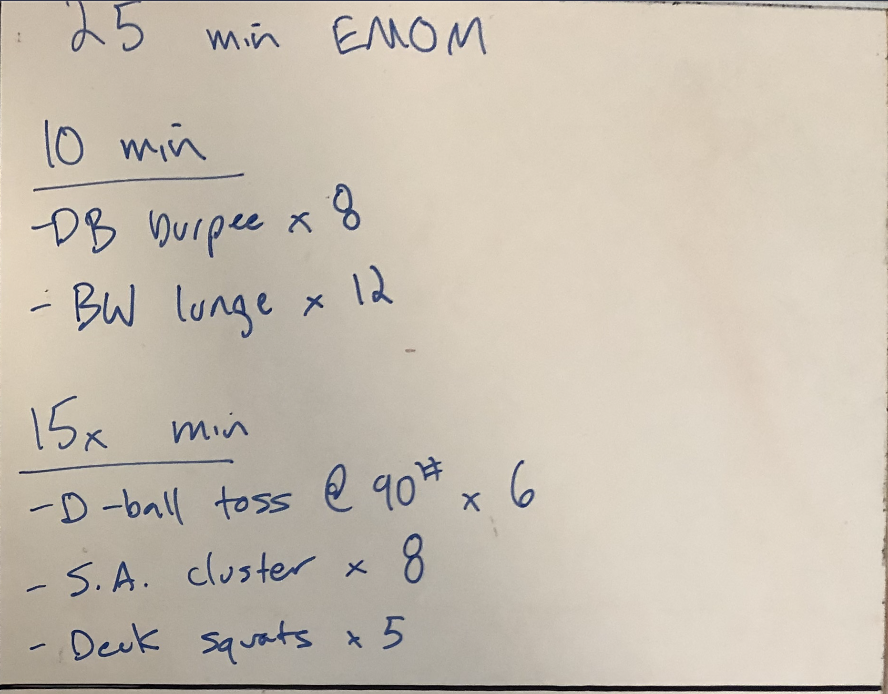 25 min EMOM
10 min
-DB burpee x 8
- BW lunge x 12
15x min
-D-ball toss @ 90# x 6
- S.A. cluster x 8
- Deck squats x 5